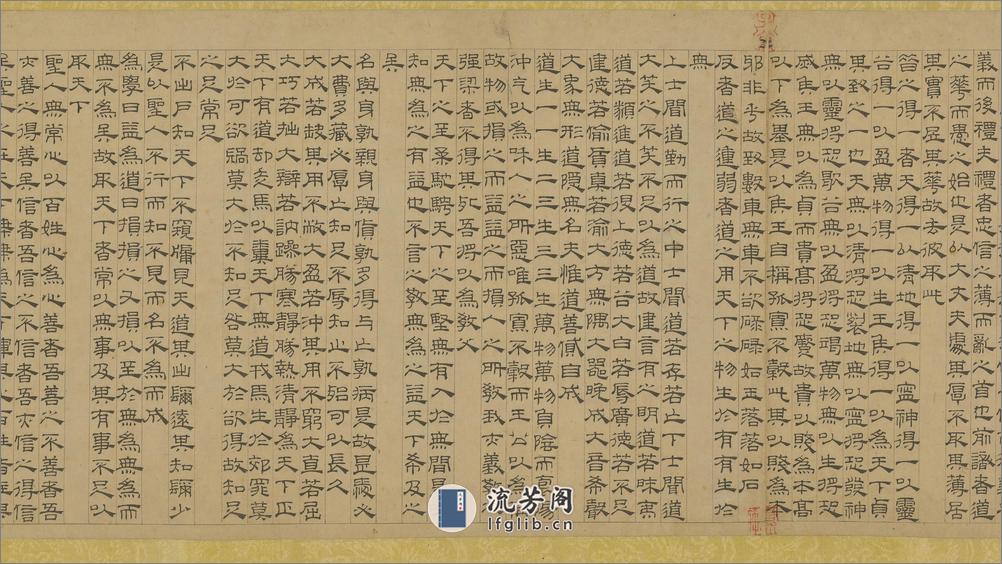 義而後禮夫禮者忠信之薄而亂之首也前識者道
之華而愚之始也是以大丈夫處其厚不取其薄居
其實不居其華故去彼取此
昔之得一者天得一以清地得一以寧神得一以靈
谷得一以盈萬物得一以生王侯得一以為天下貞
其致之一也天無以清將恐裂地無以寧將恐發神
無以靈將恐歇谷無以盈將恐竭萬物無以生將恐
滅侯王無以為貞而貴高將恐蹙故貴以賤為本高
以下為基是以侯王自稱孤寡不穀此其以賤為本
邪非乎故致數車無車不欲碌碌如玉落落如石
反者道之動弱者道之用天下之物生於有有生於
無
上士聞道勤而行之中士聞道若存若亡下士聞道
大笑之不笑不足以為道故建言有之明道若昧夷
道若纇進道若退上德若谷大白若辱廣德若不足
建德若偷質真若渝大方無隅大器晚成大音希聲
大象無形道隱無名夫惟道善貸且成
道生一一生二二生三三生萬物萬物負陰而抱陽
沖氣以為和人之所惡唯孤寡不穀而王公以為稱
故物或損之而益益之而損人之所教我亦義教之
强梁者不得其死吾將以為教父
天下之至柔馳騁天下之至堅無有入於無間是以
知無為之有益也不言之教無為之益天下希及之
矣
名與身孰親身與貨孰多得與亡孰病是故甚愛必
大費多藏必厚亡知足不辱知止不殆可以長久
大成若缺其用不敝大盈若沖其用不窮大直若屈
大巧若拙大辯若訥躁勝寒靜勝熱清靜為天下正
天下有道却走馬以糞天下無道戎馬生於郊罪莫
大於可欲禍莫大於不知足咎莫大於欲得故知足
之足常足
不出戶知天下不窺牖見天道其出彌遠其知彌少
是以聖人不行而知不見而名不為而成
為學日益為道日損損之又損以至於無為無為而
無不為矣故取天下者常以無事及其有事不足以
取天下
聖人無常心以百姓心為心善者吾善之不善者吾
亦善之得善矣信者吾信之不信者吾亦信之得信
流芳阁
lfglib.cn